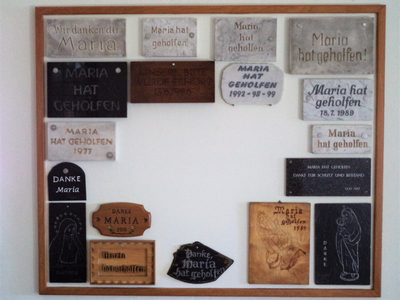 Wir danken dir
Maria
Maria hat
geholfen
Maria
hat
geholfen
Maria
hat geholfen!
MARIA
HAT
GEHOLFEN
UNSERE BITTE
WURDE ERHÖRT
MARIA
HAT
GEHOLFEN
1992-98-99
Maria hat
geholfen
18.7.1989
MARIA
HAT GEHOLFEN
1977
Maria
hat geholfen
DANKE
Maria
MARIA HAT GEHOLFEN
DANKE FÜR SCHUTZ UND BEISTAND
DANKE
MARIA
Maria
hat geholfen
Danke,
maria
hat geholfen
Maria
hat
geholfen
1981
DANKE